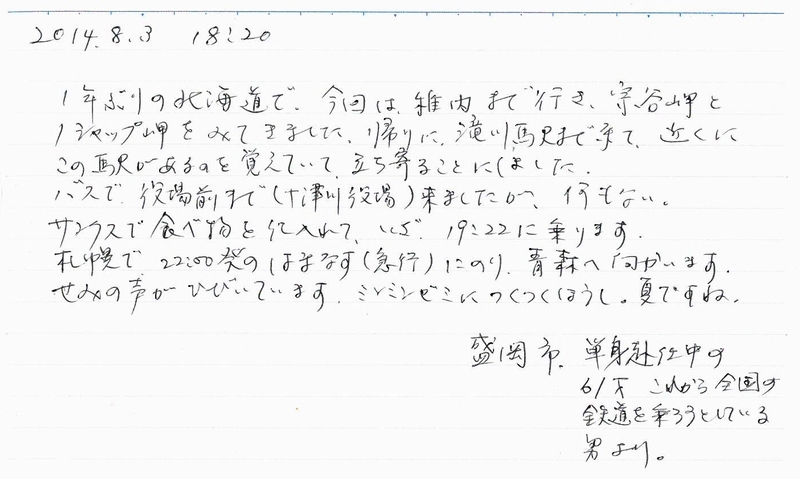 2014.8.3 18:20
1年ぶりの北海道で、今回は稚内まで行き、宗谷岬と
ノシャップ岬をみてきました。帰りに、滝川駅まで来て、近くに
この駅があるのを覚えていて、立ち寄ることにしました。
バスで、役場前まで(十津川役場)来ましたが、何もない。
サンクスで食べ物を仕入れて、いざ、19:22に乗ります。
札幌で、22:00発のはまなす(急行)にのり、青森へ向かいます。
せみの声がひびいています。ミンミンゼミにつくつくほうし。夏ですね。
盛岡市、単身赴任中の
61才 これから全国の
鉄道を乗ろうとしている
男より。